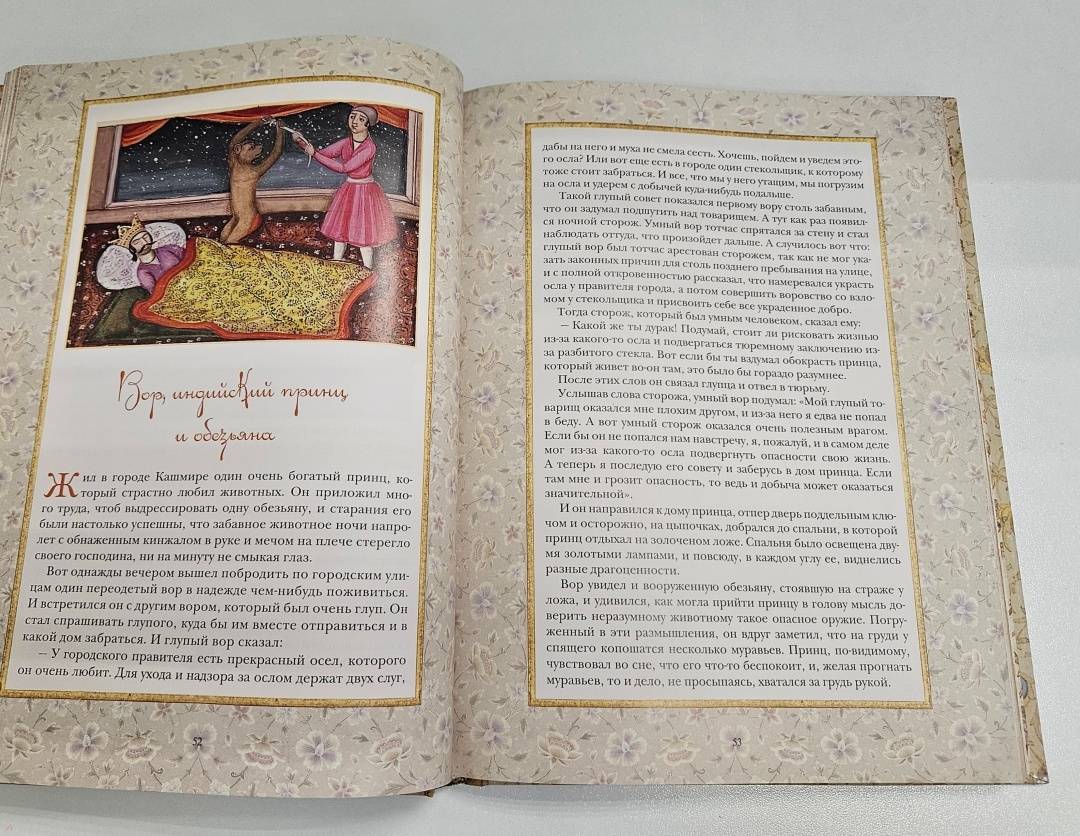 Вор, индийский принц
и обезьяна
Жил в городе Кашмире один очень богатый принц, ко-
торый страстно любил животных. Он приложил мно-
го труда, чтоб выдрессировать одну обезьяну, и старания его
были настолько успешны, что забавное животное ночи напро-
лет с обнаженным кинжалом в руке и мечом на плече стерегло
своего господина, ни на минуту не смыкая глаз.
Вот однажды вечером вышел побродить по городским ули-
цам один переодетый вор в надежде чем-нибудь поживиться.
И встретился он с другим вором, который был очень глуп. Он
стал спрашивать глупого, куда бы им вместе отправиться и в
какой дом забраться. И глупый вор сказал:
– У городского правителя есть прекрасный осел, которого
он очень любит. Для ухода и надзора за ослом держат двух слуг,
52
дабы на него и муха не смела сесть. Хочешь, пойдем и уведем это-
го осла? Или вот еще есть в городе один стекольщик, к которому
тоже стоит забраться. И все, что мы у него утащим, мы погрузим
на осла и удерем с добычей куда-нибудь подальше.
Такой глупый совет показался первому вору столь забавным,
что он задумал подшутить над товарищем. А тут как раз появил-
ся ночной сторож. Умный вор тотчас спрятался за стену и стал
наблюдать оттуда, что произойдет дальше. А случилось вот что:
глупый вор был тотчас арестован сторожем, так как не мог ука-
зать законных причин для столь позднего пребывания на улице,
и с полной откровенностью рассказал, что намеревался украсть
осла у правителя города, а потом совершить воровство со взло-
мом у стекольщика и присвоить себе все украденное добро.
Тогда сторож, который был умным человеком, сказал ему:
– Какой же ты дурак! Подумай, стоит ли рисковать жизнью
из-за какого-то осла и подвергаться тюремному заключению из-
за разбитого стекла. Вот если бы ты вздумал обокрасть принца,
который живет во-он там, это было бы гораздо разумнее.
После этих слов он связал глупца и отвел в тюрьму.
Услышав слова сторожа, умный вор подумал: «Мой глупый то-
варищ оказался мне плохим другом, и из-за него я едва не попал
в беду. А вот умный сторож оказался очень полезным врагом.
Если бы он не попался нам навстречу, я, пожалуй, и в самом деле
мог из-за какого-то осла подвергнуть опасности свою жизнь.
А теперь я последую его совету и заберусь в дом принца. Если
там мне и грозит опасность, то ведь и добыча может оказаться
значительной».
И он направился к дому принца, отпер дверь поддельным клю-
чом и осторожно, на цыпочках, добрался до спальни, в которой
принц отдыхал на золоченом ложе. Спальня было освещена дву-
мя золотыми лампами, и повсюду, в каждом углу ее, виднелись
разные драгоценности.
Вор увидел и вооруженную обезьяну, стоявшую на страже у
ложа, и удивился, как могла прийти принцу в голову мысль до-
верить неразумному животному такое опасное оружие. Погру-
женный в эти размышления, он вдруг заметил, что на груди у
спящего копошатся несколько муравьев. Принц, по-видимому,
чувствовал во сне, что его что-то беспокоит, и, желая прогнать
муравьев, то и дело, не просыпаясь, хватался за грудь рукой.
53